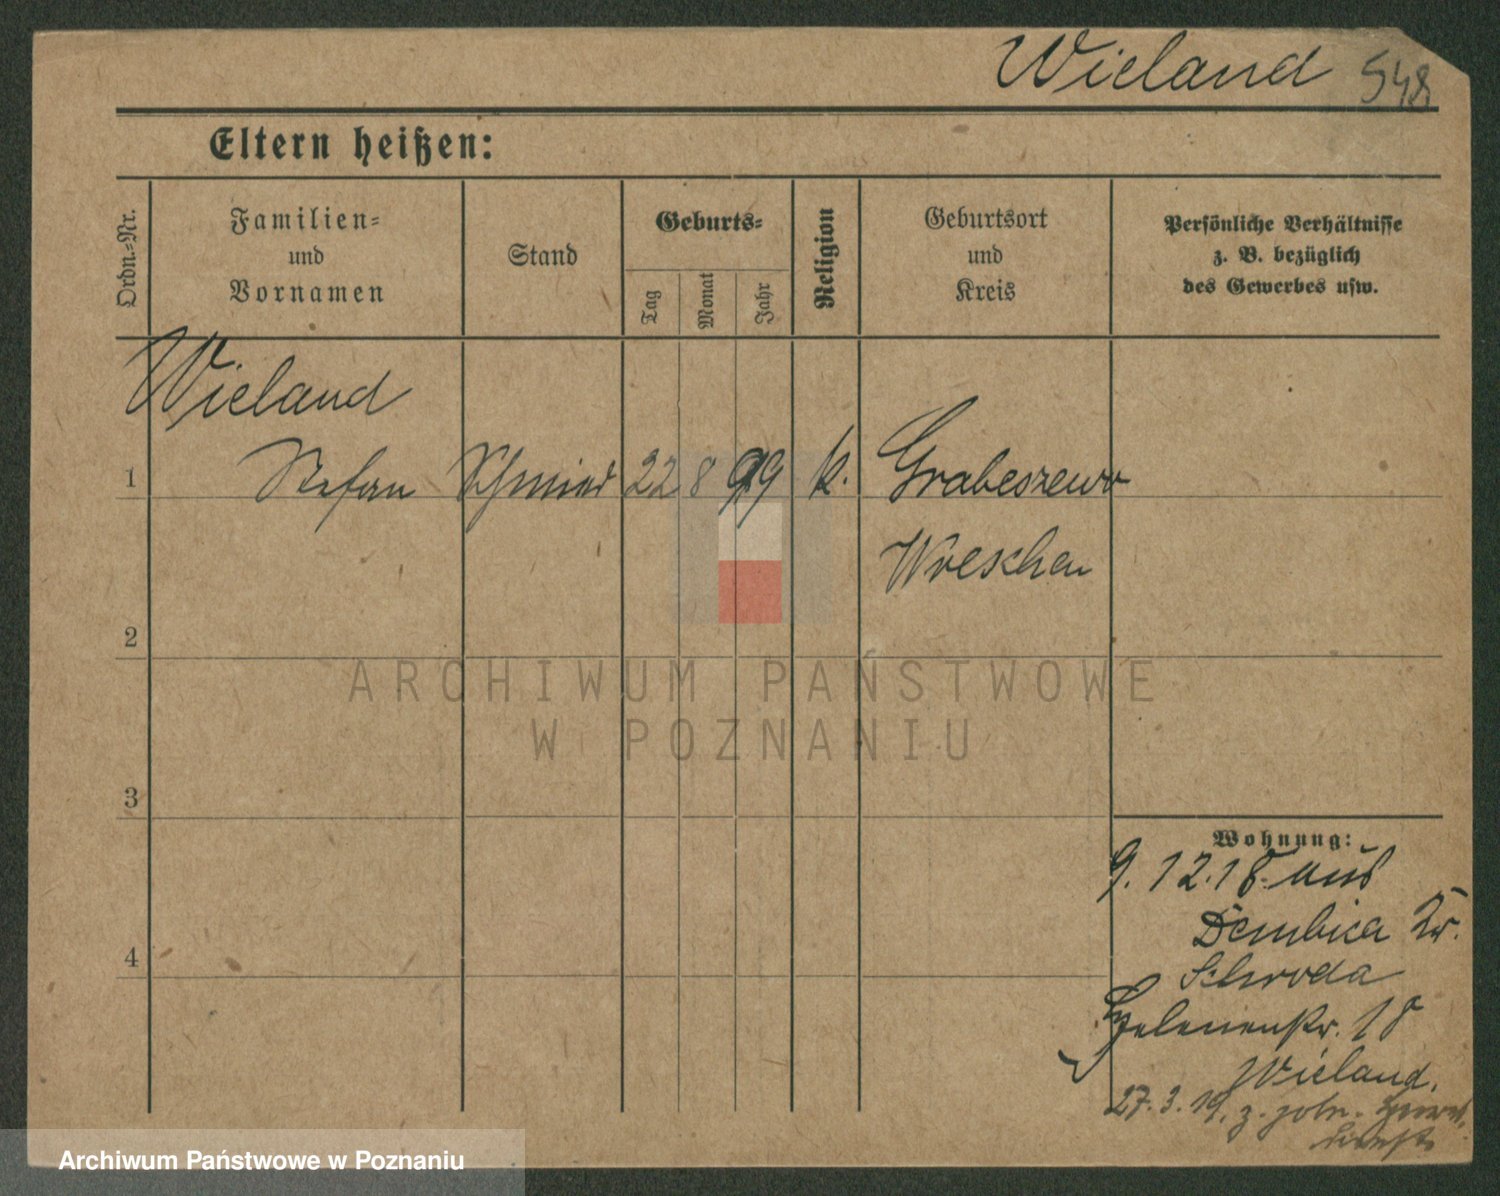 Wieland 548
Eltern heißen:
Ordn.=Nr.
Familien=
und
Vornamen
Stand
Geburts=
Tag
Monat
Jahr
Religion
Geburtsort
und
Kreis
Persönliche Verhältnisse
z. B. bezüglich
des Gewerbes usw.
Wieland
1 Stefan Schmied 22 8 99 k. Grabeszewo
Wreschen
2
3
4
Wohnung:
9. 12. 18. aus
Dembica Kr.
Schroda
Helenenstr. 18
Wieland.
27. 3. 19. z. poln.
ARCHIWUM PAŃSTWOWE
W POZNANIU
Archiwum Państwowe w Poznaniu